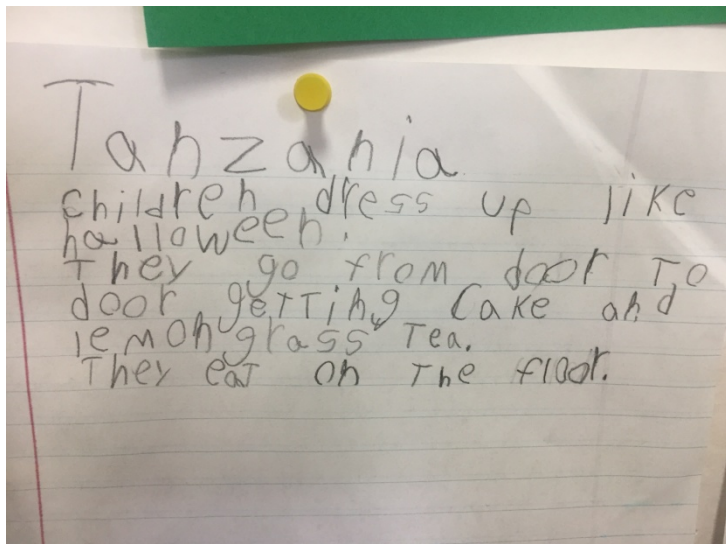 Tanzania
children dress up like
halloween.
They go from door To
door getting Cake and
lemongrass Tea.
They eat on The floor.